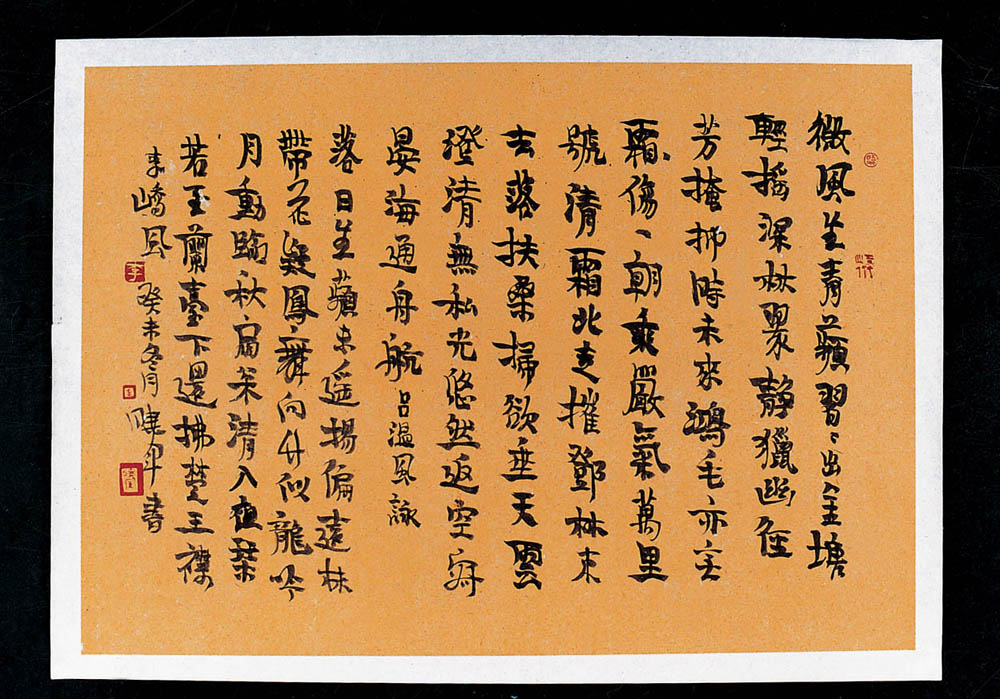 微風生青蘋習々出金塘
輕搖深林翠静獵幽径
芳掩抑時未來鴻毛亦无
霜傷一朝乘嚴氣萬里
號清霜北走摧鄧林東
去落扶桑掃欲垂天雲
澄清無私光悠然返空寂
晏海通舟航 吕温風詠
落日生蘋末遥揚偏遠林
帶花疑鳳舞向竹似龍吟
月動臨秋扇松清入夜琴
若至蘭臺下還拂楚王襟
李嶠風 李 癸未冬月 書